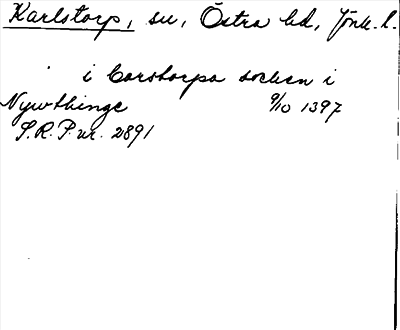 Karlstorp, sn, Östra hd, Jönk. l.
i Carstorpa sochen i
Nywthinge 9/10 1397
S.R.P. nr. 2891